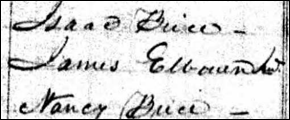 Isaac Brice -
James Elbourn
Nancy Brice -